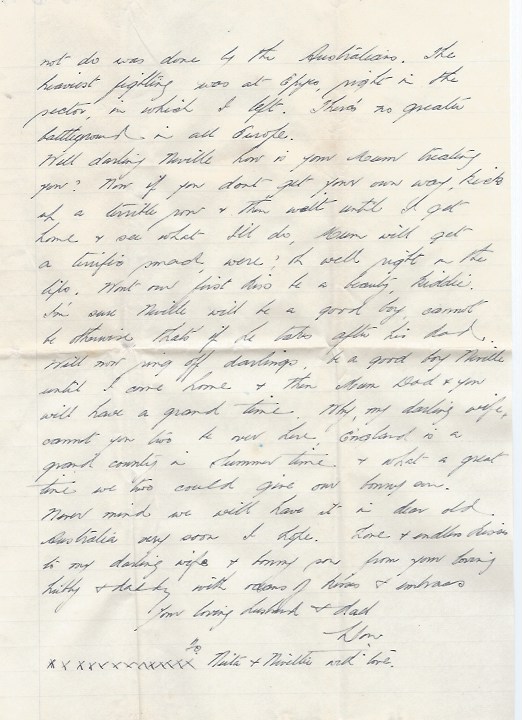 not do was done by the Australians. The
heaviest fighting was at Ypres, right in the
sector, in which I left. There's no greater
battleground in all Europe.
Well darling Neville how is your Mum treating
you? Now if you dont get your own way, kick
up a terrible row & then wait until I get
home & see what I'll do, Mum will get
a terrific smack, were? Oh well right on the
lips. Wont our first kiss be a beauty, Kiddie.
I'm sure Neville will be a good boy, cannot
be otherwise thats if he takes after his dad.
Will now ring off darlings, be a good boy Neville
until I come home & then Mum Dad & you
will have a grand time. Why, my darling wife,
cannot you two be over here, England is a
grand country in summer time & what a great
time we two could give our bonny son.
Never mind we will have it in dear old
Australia very soon I hope. Love & endless kisses
to my darling wife & bonny son from your loving
hubby & daddy with oceans of kisses & embraces
Your loving husband & dad
xxxxxxxxxxxxxx To Neita & Neville with love.